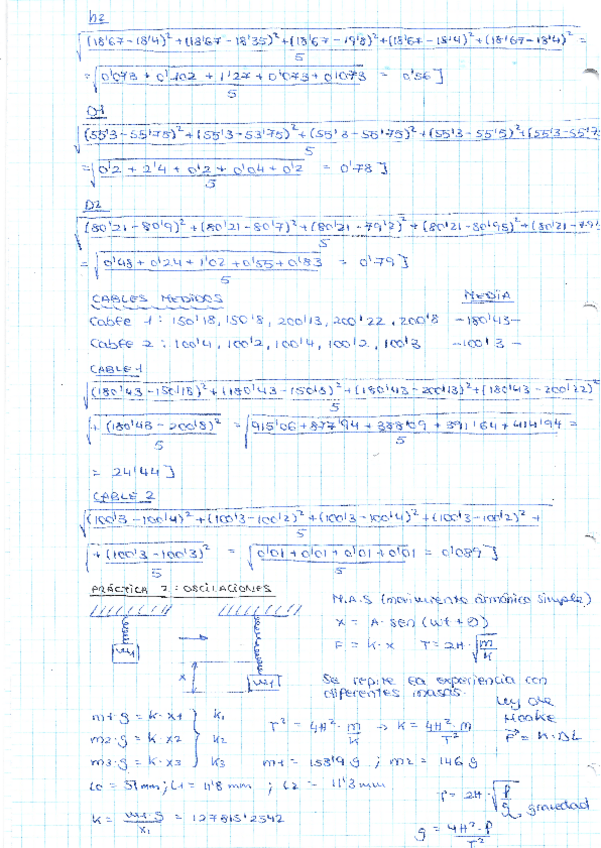 h2
√((18'67-18'4)² + (18'67-18'35)² + (18'67-19'8)² + (18'67-18'4)² + (18'67-18'4)² / 5) =
= √(0'073 + 0'102 + 1'27 + 0'073 + 0'073 / 5) = 0'56]
D1
√((55'3-55'75)² + (55'3-53'75)² + (55'3-55'75)² + (55'3-55'5)² + (55'3-55'7 / 5
= √(0'2 + 2'4 + 0'2 + 0'04 + 0'2 / 5) = 0'78]
D2
√((80'21-80'9)² + (80'21-80'7)² + (80'21-79'2)² + (80'21-80'95)² + (80'21-79' / 5
= √(0'48 + 0'24 + 1'02 + 0'55 + 0'83 / 5) = 0'79]
CABLES MEDIDOS MEDIA
Cable 1: 150'18, 150'8, 200'13, 200'22, 200'8 -180'43-
Cable 2: 100'4, 100'2, 100'4, 100'2, 100'3 -100'3-
CABLE 1
√((180'43-150'18)² + (180'43-150'8)² + (180'43-200'13)² + (180'43-200'22)² / 5
+ (180'43-200'8)² / 5 = √(915'06 + 877'94 + 388'09 + 391'64 + 414'94 / 5) =
= 24'44]
CABLE 2
√((100'3-100'4)² + (100'3-100'2)² + (100'3-100'4)² + (100'3-100'2)² + / 5
+ (100'3-100'3)² / 5 = √(0'01 + 0'01 + 0'01 + 0'01 / 5) = 0'089]
PRÁCTICA 2: OSCILACIONES
M.A.S (movimiento armónico simple)
x = A · sen (wt + θ)
F = K · x T = 2π · √(m/K)
m1
x
m1
Se repite la experiencia con
diferentes masas.
Ley de
Hooke
F = K · ΔL
m1 · g = k · x1 } k1
m2 · g = k · x2 } k2
m3 · g = k · x3 } k3
T² = 4π² · m/K → K = 4π² · m / T²
m1 = 158'9 g ; m2 = 146 g
l0 = 51 mm; l1 = 11'8 mm ; l2 = 11'3 mm
k = m1 · g / x1 = 127515'2542
T = 2π · √(l/g) gravedad
g = 4π² · l / T²